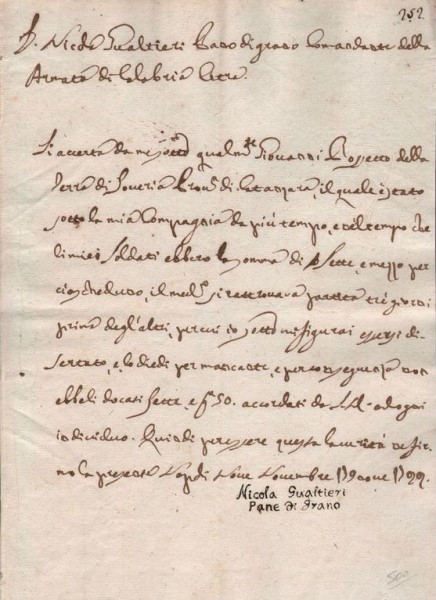 252.
D. Nicola Gualtieri Pane di grano Comandante della
Armata di Calabria Citra.
Si accerta da me sotto qualmte Giovanni Rossetto della
Terra di Soveria Provа di Catanzara, il quale è stato
sotto la mia Compagnia da più tempo, e del tempo che
li miei Soldati ebbero la somma di Sette, e mezzo per
ciascheduno, il medo si ritrovava partito tre giorni
prima degl'altri, per cui io sotto mi figurai essersi di-
sertato, e lo diedi per mancante, e per conseguenza non
ebbe li docati sette, e 50. accordati da ad ogni
individuo. Quindi per essere questa la verità ne fir-
mo la presente Napoli Nove Novembre 1799.
Nicola Gualtieri
Pane di Grano
500